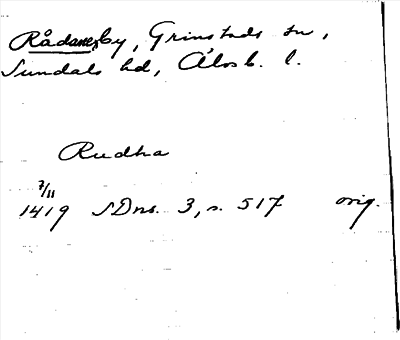 Rådaneby, Grinstads sn,
Sundals hd, Älvsb. l.
Rudha
7/11
1419 SDns. 3, s. 517 orig.